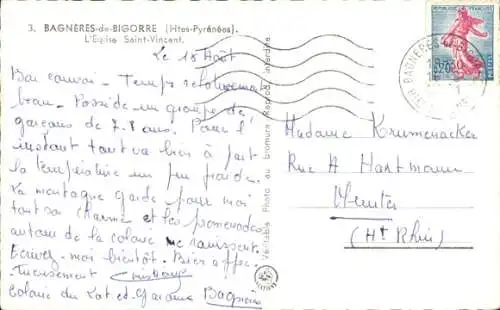 3. BAGNÈRES-de-BIGORRE (Htes-Pyrénées).
L'Eglise Saint-Vincent.
Le 18 Août
Bon - Temps relativement
beau. Possède un groupe de
garçons de 7-8 ans. Pour l'
instant tout va bien à part
la température un peu froide.
La montagne garde pour moi
tout son charme et les promenades
autour de la colonie me ravissent.
Ecrivez-moi bientôt. Bien affec-
tueusement
Colonie du Lot-et-Garonne Bagnères
Véritable Photo au bromure Reprod. interdite
REPUBLIQUE FRANÇAISE
0,20
BAGNERES
Madame Krumenacker
Rue A Hartmann
Munster
(Ht Rhin)